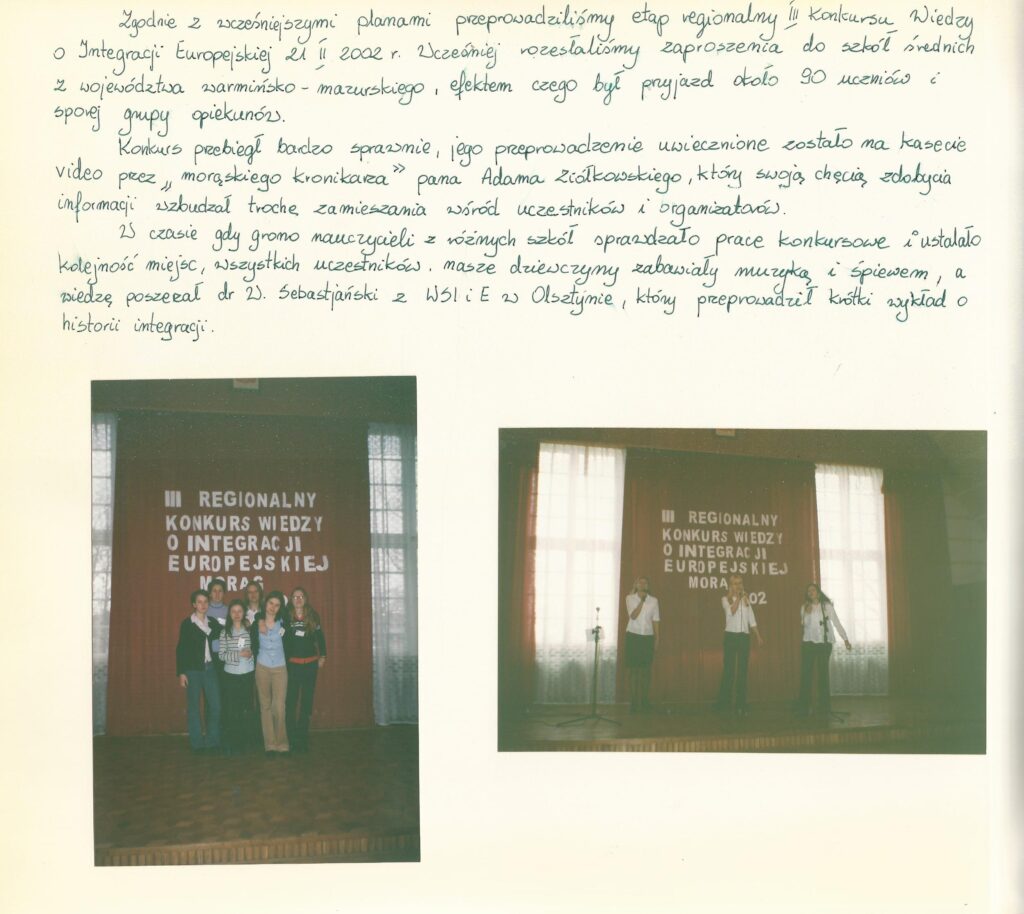 Zgodnie z wcześniejszymi planami przeprowadziliśmy etap regionalny III Konkursu Wiedzy
o Integracji Europejskiej 21 II 2002 r. Wcześniej rozesłaliśmy zaproszenia do szkół średnich
z województwa warmińsko - mazurskiego, efektem czego był przyjazd około 90 uczniów i
sporej grupy opiekunów.
Konkurs przebiegł bardzo sprawnie, jego przeprowadzenie uwiecznione zostało na kasecie
video przez „morąskiego kronikarza” pana Adama Ziółkowskiego, który swoją chęcią zdobycia
informacji wzbudzał trochę zamieszania wśród uczestników i organizatorów.
W czasie gdy grono nauczycieli z różnych szkół sprawdzało prace konkursowe i ustalało
kolejność miejsc, wszystkich uczestników. nasze dziewczyny zabawiały muzyką i śpiewem, a
wiedzę poszerzał dr W. Sebastjański z WSI i E w Olsztynie, który przeprowadził krótki wykład o
historii integracji.
III REGIONALNY
KONKURS WIEDZY
O INTEGRACJI
EUROPEJSKIEJ
MORĄG
III REGIONALNY
KONKURS WIEDZY
O INTEGRACJI
EUROPEJSKIEJ
MORA
02